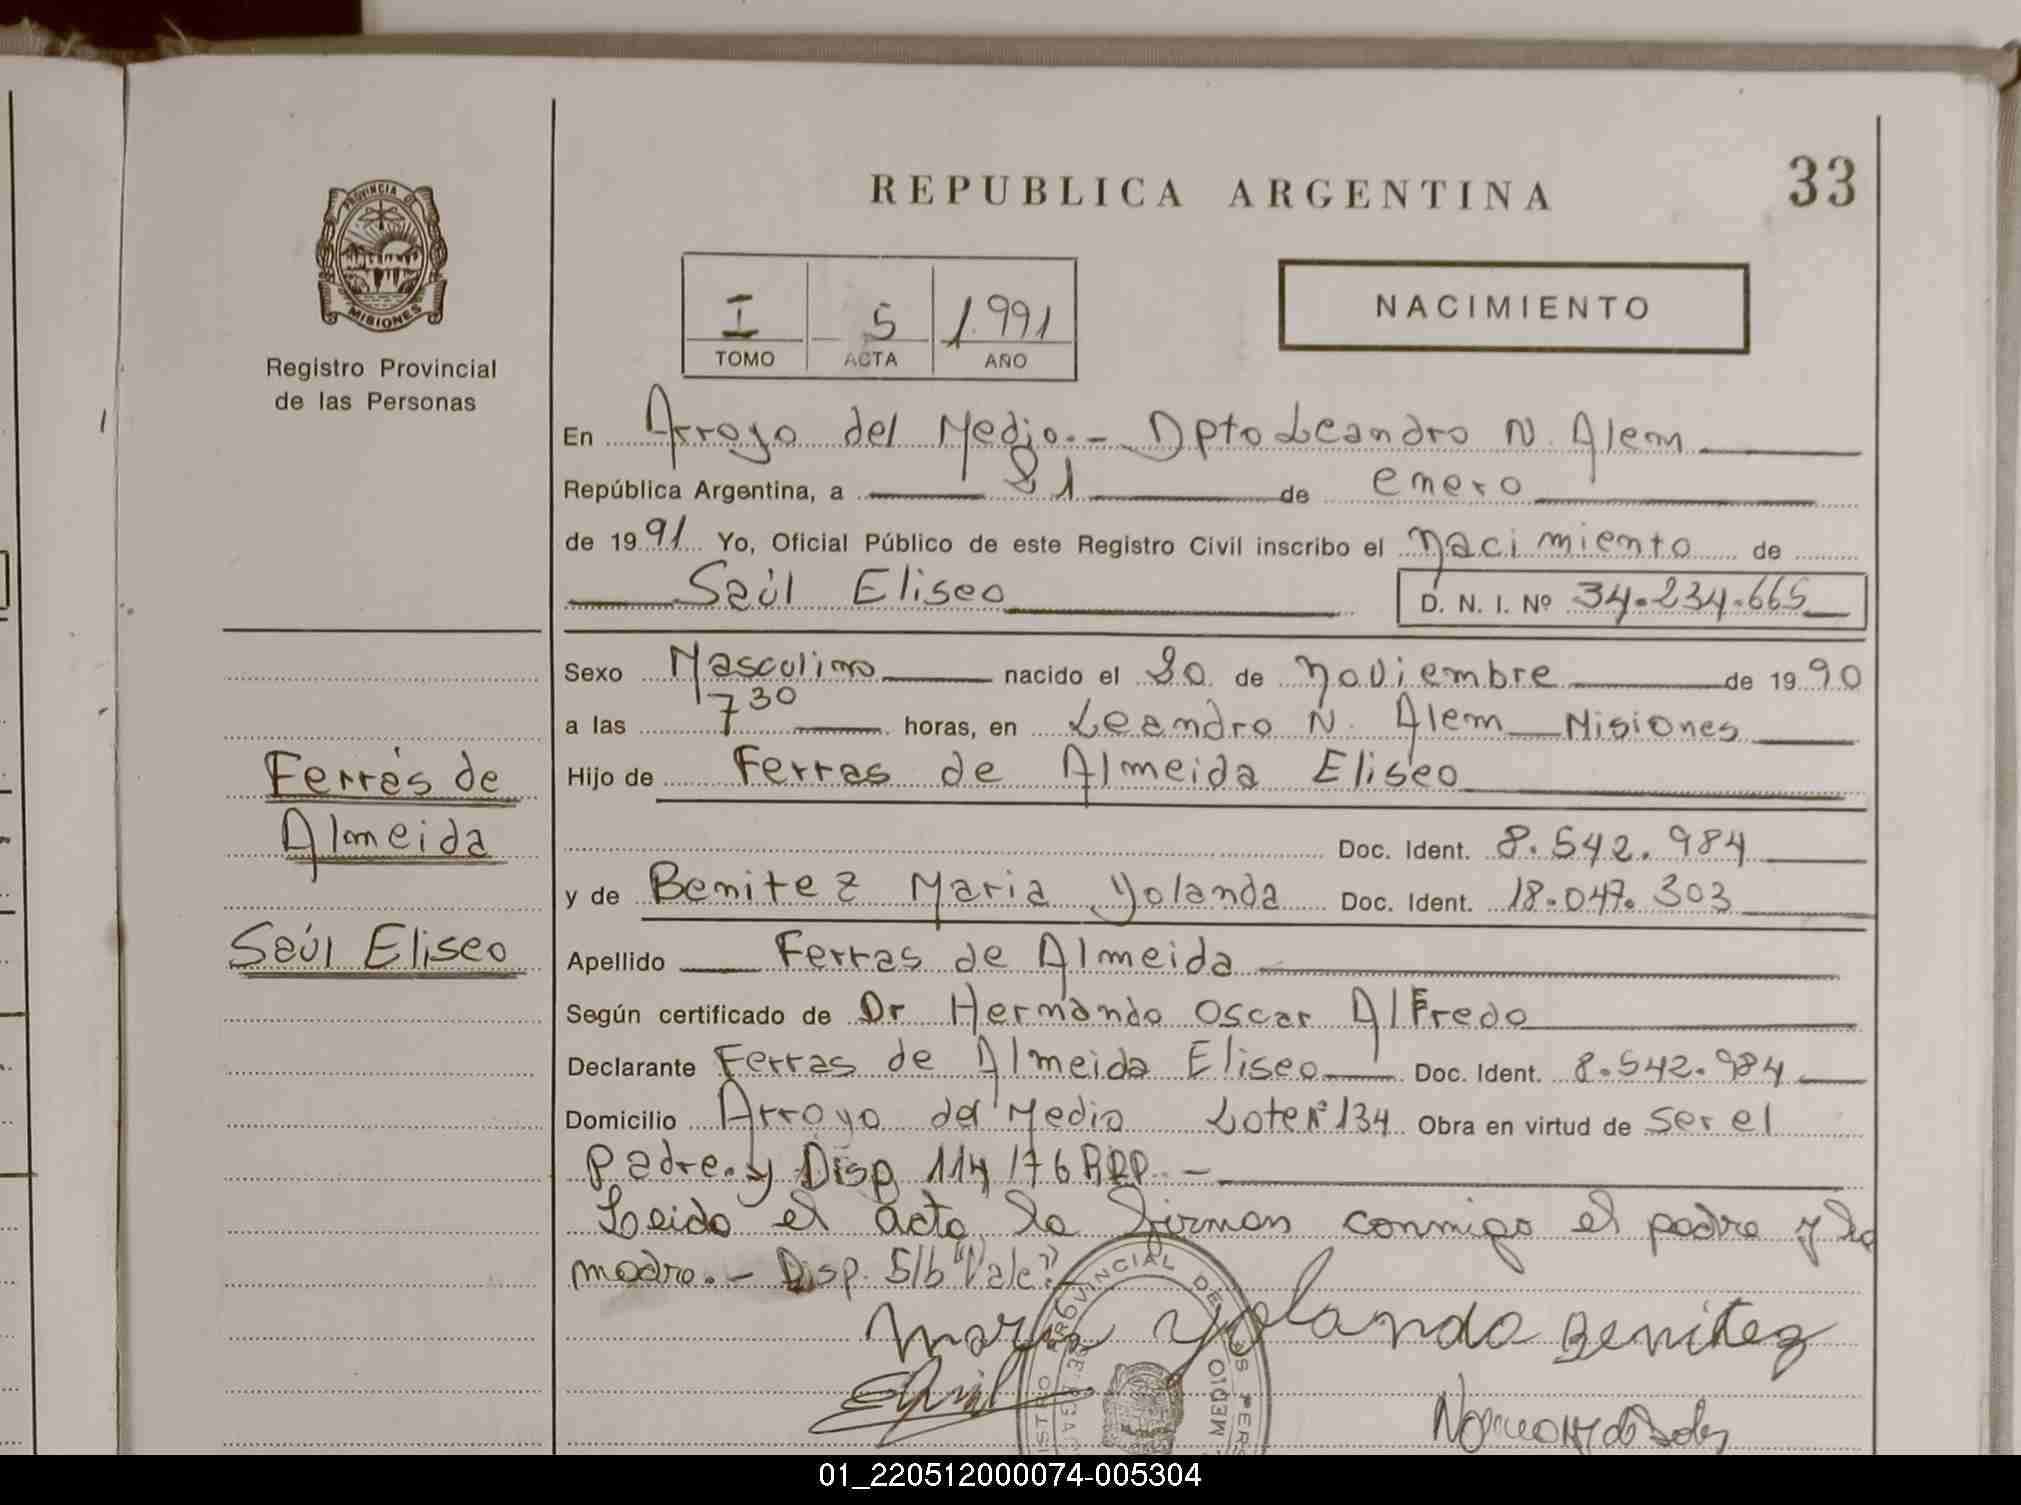 REPUBLICA ARGENTINA
33
PROVINCIA DE
MISIONES
Registro Provincial
de las Personas
I 5 1.991
TOMO ACTA AÑO
NACIMIENTO
En Arroyo del Medio.- Dpto Leandro N. Alem
República Argentina, a 21 de enero
de 1991 Yo, Oficial Público de este Registro Civil inscribo el nacimiento de
Saúl Eliseo D. N. I. Nº 34.234.665
Sexo Masculino nacido el 20 de noviembre de 1990
a las 7 30 horas, en Leandro N. Alem Misiones
Hijo de Ferras de Almeida Eliseo
Doc. Ident. 8.542.984
y de Benitez Maria Yolanda Doc. Ident. 18.047.303
Apellido Ferras de Almeida
Según certificado de Dr Hernando Oscar Alfredo
Declarante Ferras de Almeida Eliseo Doc. Ident. 8.542.984
Domicilio Arroyo del Medio Lote Nº 134 Obra en virtud de ser el
padre. y Disp 114/76 RPP.-
Leido el acta la firman conmigo el padre y la
madre.- Disp. 5/6 "Vale".-
Ferras de
Almeida
Saúl Eliseo
Maria Yolanda Benitez
01_220512000074-005304